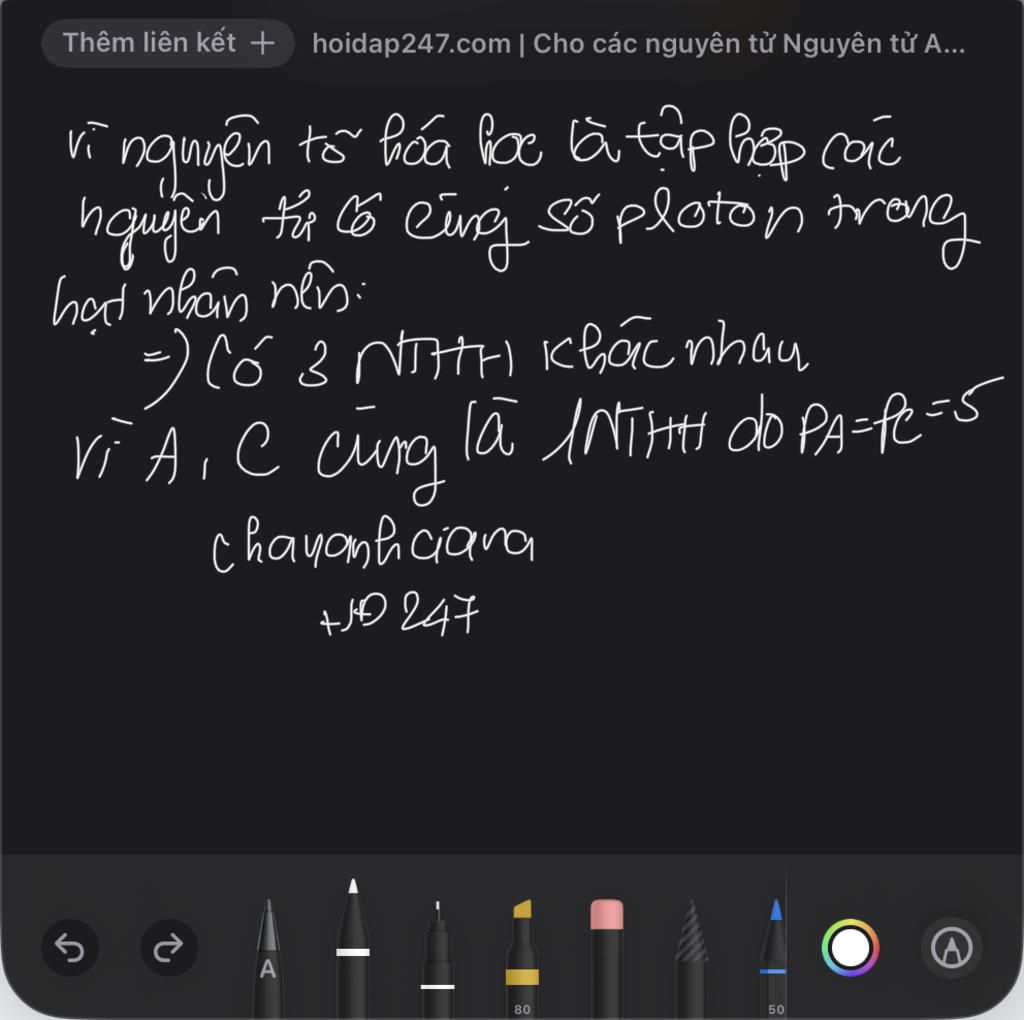 Thêm liên kết + hoidap247.com | Cho các nguyên tử Nguyên tử A...
Vì nguyên tố hóa học là tập hợp các
nguyên tử có cùng số ploton trong
hạt nhân nên:
=) Có 3 NTHH khác nhau
vì A, C cùng là 1NTHH do PA=PC=5
chayanhciana
+HD 247
A
80
50